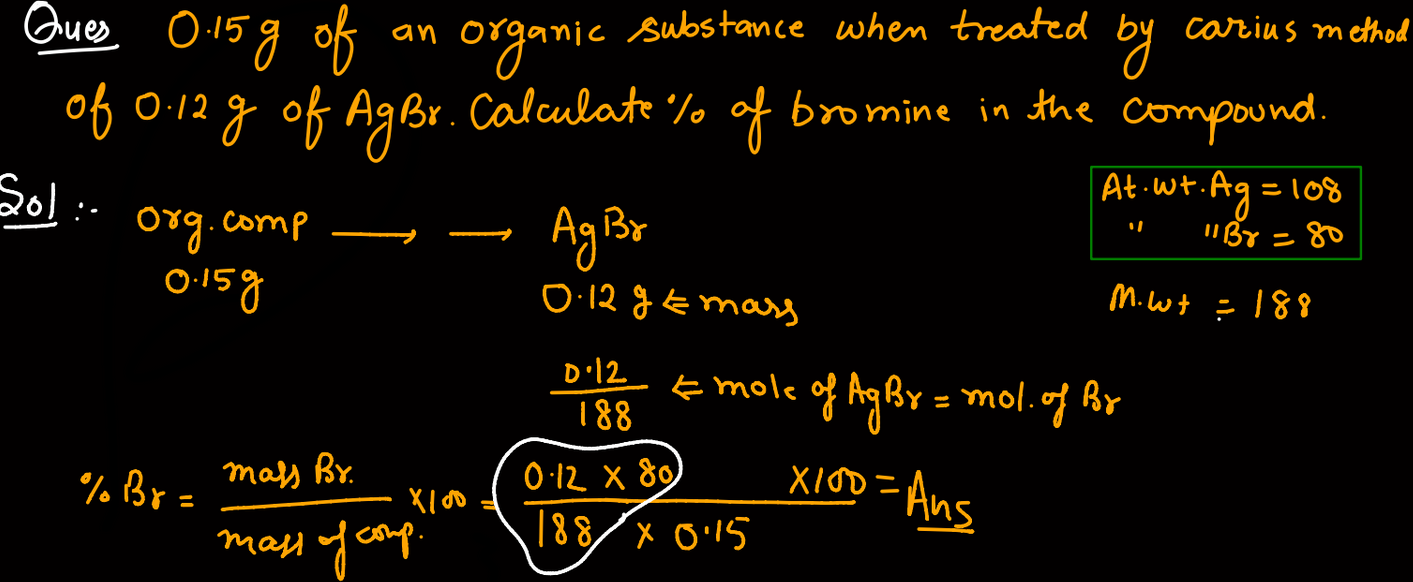 Ques 0.15 g of an organic substance when treated by carius method
of 0.12 g of AgBr. Calculate % of bromine in the compound.
Sol :- org. comp → → AgBr
At. wt. Ag = 108
" " Br = 80
0.15g 0.12 g ⇐ mass
M.wt = 188
0.12/188 ⇐ mole of AgBr = mol. of Br
% Br = mass Br. / mass of comp. X100 = 0.12 X 80 / 188 X 0.15 X100 = Ans